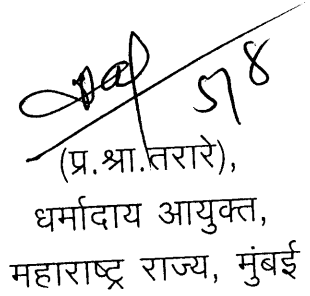 ५/४
(प्र.श्रा.तरारे),
धर्मादाय आयुक्त,
महाराष्ट्र राज्य, मुंबई